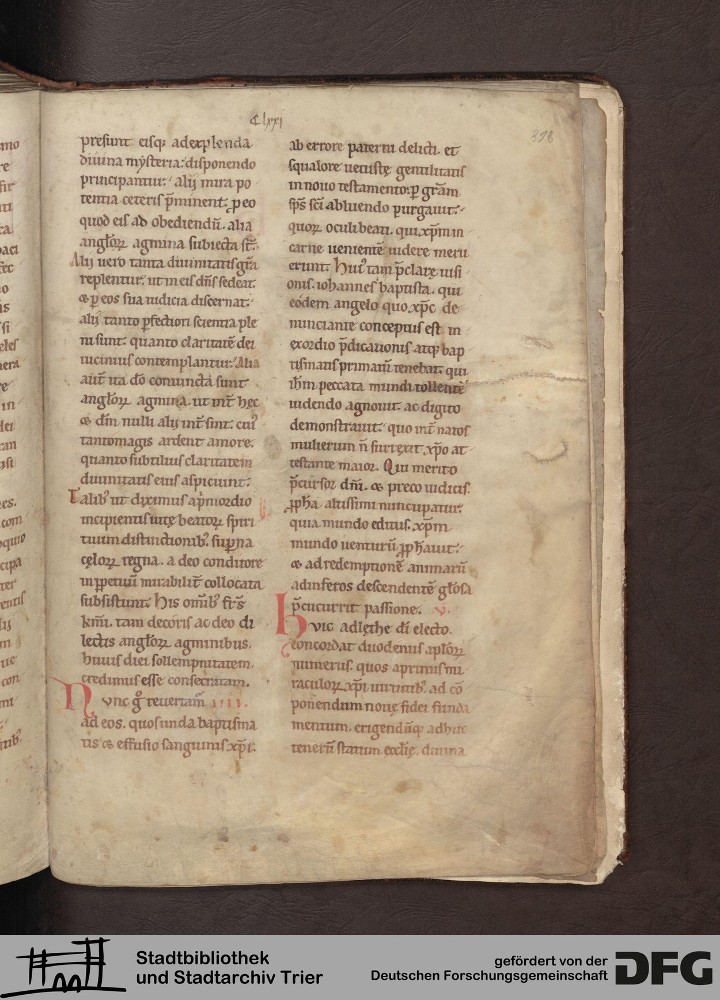 Clxxi
398
presunt eisq; adexplenda
diuina mysteria: disponendo
principantur. alij mira po
tentia ceteris p̄minent. ꝓ eo
quod eis ad obediendū. alia
angl̓oꝝ agmina subiecta st̄.
Alij uero tanta diuinitatis gr̄a
replentur. ut in eis dn̄s sedeat.
& ꝑ eos sua iudicia discernat.
alij tanto ꝑfectiori scientia ple
ni sunt. quanto claritatē dei
uicinius contemplantur. Alia
aut̄ ita dō coniuncta sunt
angl̓oꝝ agmina. ut int̄ hęc
& dm̄ nulli alij int̄sint. cui᾽
tantomagis ardent amore.
quanto subtilius claritatem
diuinitatis eius aspiciunt.
Talib᾽ ut diximus ap̄mordio
incipientis uitę beatoꝝ spiri
tuum distinctionib᾽. sup̄na
cęloꝝ regna. a deo conditore
inꝑpetuū mirabilit̄ collocata
subsistunt. His om̄ib᾽ fr̄s
km̄i. tam decoris ac deo di
lectis angl̓oꝝ agminibus.
huius diei sollempnitatem
credimus esse consecratam.
Nunc g̊ reuertam̄ iiii.
ad eos. quos unda baptisma
tis & effusio sanguinis xp̄i.
ab errore paterni delicti. et
squalore uetustę gentilitatis
in nouo testamento. ꝑ gr̄am
sp̄s sc̄i abluendo purgauit.
quoꝝ oculi beati. qui xp̄m in
carne uenientē uidere meru
erunt. Hui᾽ tam p̄clarę uisi
onis. iohannes baptista. qui
eodem angelo quo xp̄c de
nunciante conceptus est in
exordio p̄dicationis atq; bap
tismatis primatū tenebat. qui
ih̄m peccata mundi tollentē
uidendo agnouit. ac digito
demonstrauit. quo int̄ natos
mulierum n̄ surrexit xp̄o at
testante maior. Qui merito
p̄cursor dn̄i. & preco iudicis.
ꝓph̄a altissimi nuncupatur.
quia mundo editus. xp̄m
mundo uenturū ꝓph̄auit.
& ad redemptionē animarū
adinferos descendentē gl̓osa
p̄cucurrit passione. v.
Huic adlęthe di electo.
concordat duodenus apl̓oꝝ
numerus. quos aprimis mi
raculoꝝ xp̄i uirtutib᾽. ad cō
ponendum nouę fidei funda
mentum. erigendūq; adhuc
tenerū statum eccl̓ię. diuina
Stadtbibliothek
und Stadtarchiv Trier
gefördert von der
Deutschen Forschungsgemeinschaft
DFG